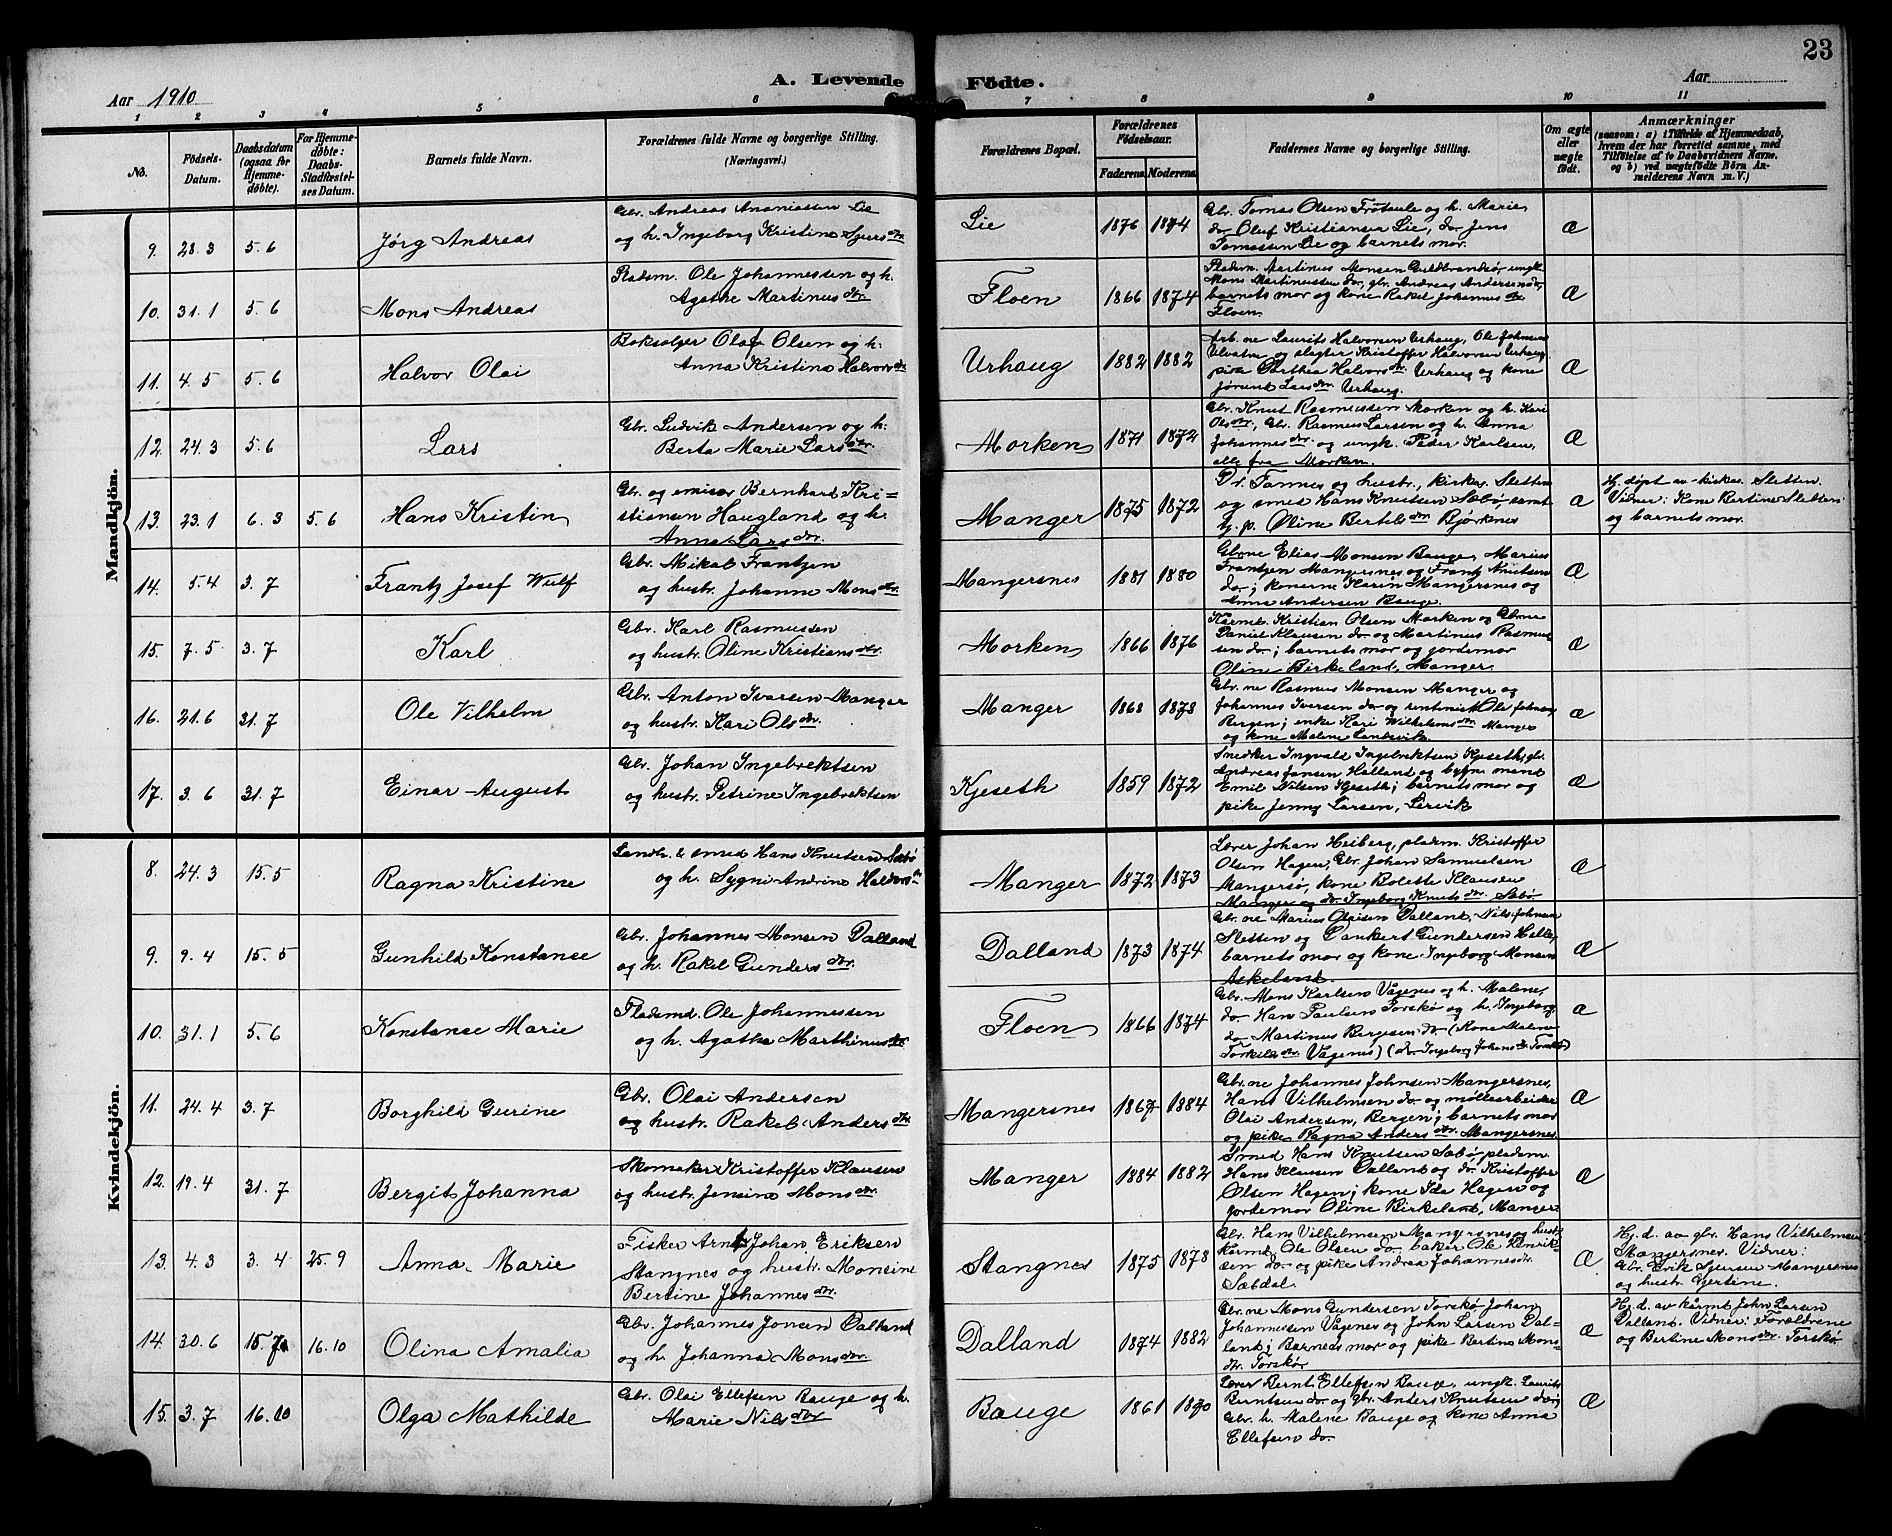 23
A. Levende Födte.
Aar 1910
Aar
1 2 3 4 5 6 7 8 9 10 11
No.
Födsels-Datum.
Daabsdatum (ogsaa for Hjemme-døbte).
For Hjemme-døbte: Daabs-Stadfæstel-ses Datum.
Barnets fulde Navn.
Forældrenes fulde Navne og borgerlige Stilling. (Næringsvei.)
Forældrenes Bopæl.
Forældrenes Födselsaar.
Faderens Moderens
Faddernes Navne og borgerlige Stilling.
Om ægte eller uægte født.
Anmærkninger
(saasom: a) i Tilfælde af Hjemmedaab, hvem der har forrettet samme, med Tilföielse af to Daabsvidners Navne, og b) ved uægtefödte Börn An-melderens Navn m. V.)
Mandkjön.
9. 28.3 5.6 Jørg Andreas
Gbr. Andreas Ananiassen Lie
og h. Ingeborg Kristine Sjursdtr.
Lie 1876 1874
Gbr. Tomas Olsen Frotjule og h. Marie,
do Oluf Kristiansen Lie, do Jens
Tomassen Lie og barnets mor.
Æ
10. 31.1 5.6 Mons Andreas
Pladsm. Ole Johannessen og h.
Agathe Martinusdtr.
Floen 1866 1874
Pladsm. Martinus Monsen Guldbrandsø, ungk.
Mons Martinussen do, gbr. Andreas Andersen do,
barnets mor og kone Rakel Johannusdtr.
Floen.
Æ
11. 4.5 5.6 Halvor Olai
Boksølger Olaf Olsen og h.
Anna Kristine Halvorsdtr.
Urhaug 1882 1882
Arb.ne Laurits Halvorsen Urhaug, Ole Johnsen
Ulvatn og slagter Kristoffer Halvorsen Urhaug
pike Barthea Halvorsdtr. Urhaug og kone
Jørund Larsdtr. Urhaug.
Æ
12. 24.3 5.6 Lars
Gbr. Ludvik Andersen og h.
Berta Marie Larsdtr.
Morken 1871 1872
Gbr. Knut Rasmussen Morken og h. Kari
Olsdtr., Gbr. Rasmus Larsen og h. Anna
Johannesdtr. og ungk. Peder Karlsen,
alle fra Morken.
Æ
13. 23.1 6.3 5.6 Hans Kristin
Gbr. og emisær Bernhard Kri-
stiansen Haugland og h.
Anna Larsdtr.
Manger 1875 1872
Dr. Tannes og hustr., kirkes. Sletten
og smed Hans Knutsen Sæbø, samt
tj. p. Oline Bertelsdtr. Bjørknes
Æ
Hj. døpt av kirkes. Sletten.
Vidner: Kone Bertine Sletten
og barnets mor.
14. 5.4 3.7 Frantz Josef Wulf
Gbr. Mikal Frantzen
og hustr. Johanne Monsdtr.
Mangersnes 1881 1880
Gbrne Elias Monsen Bauge, Marius
Frantzen Mangersnes og Frantz Knutsen
do; konerne Karin Mangersnes og
Anna Andersen Bauge.
Æ
15. 7.5 3.7 Karl
Gbr. Karl Rasmussen
og hustr. Oline Kristiansdtr.
Morken 1866 1876
Kaarmd. Kristian Olsen Morken og Gbrne
Daniel Klausen do og Martinus Rasmus
sen do; barnets mor og jordemor
Oline Birkeland, Manger.
Æ
16. 21.6 31.7 Ole Vilhelm
Gbr. Anton Ivarsen Manger
og hustr. Kari Olsdtr.
Manger 1868 1878
Gbr.ne Rasmus Monsen Manger og
Johannes Iversen do og rentenist Ole Johnsen
Bergen; enke Kari Wilhelmsdtr. Manger
og kone Malene Landsvik.
Æ
17. 3.6 31.7 Einar August
Gbr. Johan Ingebrektsen
og hustr. Petrine Ingebrektsen
Kjeseth 1859 1872
Snedker Ingvald Ingebrektsen Kjeseth, gbr.
Andreas Jansen Halland og bygm. mand
Emil Nilsen Kjeseth; barnets mor og
pike Jenny Larsen, Lervik
Æ
Kvindekjön.
8. 24.3 15.5 Ragna Kristine
Landh. & smed Hans Knutsen Sæbø
og h. Sygni Andrine Haldorsdtr.
Manger 1872 1873
Lærer Johan Heiberg, pladsm. Kristoffer
Olsen Hagen, Gbr. Johan Samuelsen
Mangersø, kone Bolette Klausen
Manger og do Ingeborg Knutsdtr. Sæbø.
Æ
9. 9.4 15.5 Gunhild Konstanse
Gbr. Johannes Monsen Dalland
og h. Rakel Gundersdtr.
Dalland 1873 1874
Gbr.ne Marius Olaisen Dalland, Nils Johnsen
Sletten og Dankert Gundersen Helle,
barnets mor og kone Ingeborg Monsen
Askeland
Æ
10. 31.1 5.6 Konstanse Marie
Pladsmd. Ole Johannessen
og h. Agathe Marthinusdtr.
Floen 1866 1874
Gbr. Mons Karlsen Vågenes og h. Malene,
do Han Paulsen Torskø og h. Ingeborg,
do Martinus Bergesen do (Kone Malene
Torkelsdtr. Vågenes) (do Ingeborg Johansdtr. Torskø)
Æ
11. 24.4 3.7 Borghild Gurine
Gbr. Olai Andersen
og hustr. Rakel Andersdtr.
Mangersnes 1867 1884
Gbr.ne Johannes Johnsen Mangersnes,
Hans Vilhelmsen do og møllearbeider
Olai Andersen, Bergen; barnets mor
og pike Ragna Andersdtr. Mangersnes.
Æ
12. 19.4 31.7 Bergit Johanna
Skomaker Kristoffer Klausen
og hustr. Jensine Monsdtr.
Manger 1884 1882
Smed Hans Knutsen Sæbø, pladsm.
Hans Klausen Dalland og do Kristoffer
Olsen Hagen; kone Ida Hagen og
jordemor Oline Birkeland, Manger
Æ
13. 4.3 3.4 25.9 Anna Marie
Fisker Arnt Johan Eriksen
Stangnes og hustr. Monsine
Bertine Johannesdtr.
Stangnes 1875 1878
Gbr. Hans Vilhelmsen Mangersnes og hustr.
kårmd. Ole Olsen do baker Ole Henrik-
sen do og pike Andrea Johannesdtr.
Sæbdal.
Æ
Hj.d. av gbr. Hans Vilhelmsen
Mangersnes. Vidner:
Gbr. Erik Sjursen Mangersnes
og hustr. Gjertine.
14. 30.6 15.7 16.10 Olina Amalia
Gbr. Johannes Jonsen Dalland
og h. Johanna Monsdtr.
Dalland 1874 1882
Gbr.ne Mons Gundersen Torskø Johan
Johannessen Vågenes og John Larsen Dal-
land; Barneds mor og pike Bertine Mons-
dtr. Torskø
Æ
Hj.d. av kårmd John Larsen
Dalland. Vidner: Forældrene
og Bertine Monsdtr. Torskø
15. 3.7 16.10 Olga Mathilde
Gbr. Olai Ellefsen Bauge og h.
Marie Nilsdtr
Bauge 1861 1870
Lærer Bernt Ellefsen Bauge, ungk. Laurits
Berntsen do og gbr. Anders Knutsen do;
Gbr. h. Malene Bauge og kone Anna
Ellefsen do
Æ